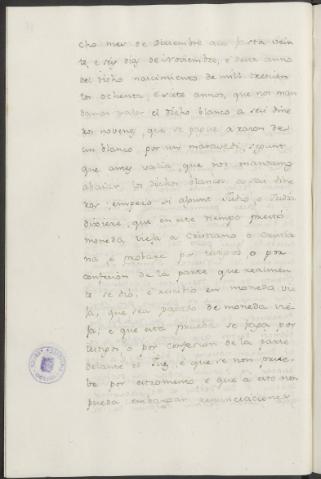 cho mes de diciembre asi fasta vein
te, e seys dias de Noviembre, e deste anno
del dicho nascimiento de mill trecien
tos ochenta, e siete annos, que nos man
damos valer el dicho blanco a seis dine
ros novenes, que se pague a razon de
un blanco por un maravedi, segunt
que antes valia, que nos mandamos
abaxar los dichos blancos a seis dine
ros: empero si algunt Judio o Judia
dixiere, que en este tiempo prestó
moneda vieja a Cristiano o Cristia
na é probare por testigos o por
confesion de la parte que realmen
te se dió, e rescibió en moneda vie
ja, que sea pagado de moneda vie
ja, e que esta prueba se faga por
testigos o por confesion de la parte
delante el Juez, e que se non prue
be por estromento e que a esto non
pueda embargar renunciaciones